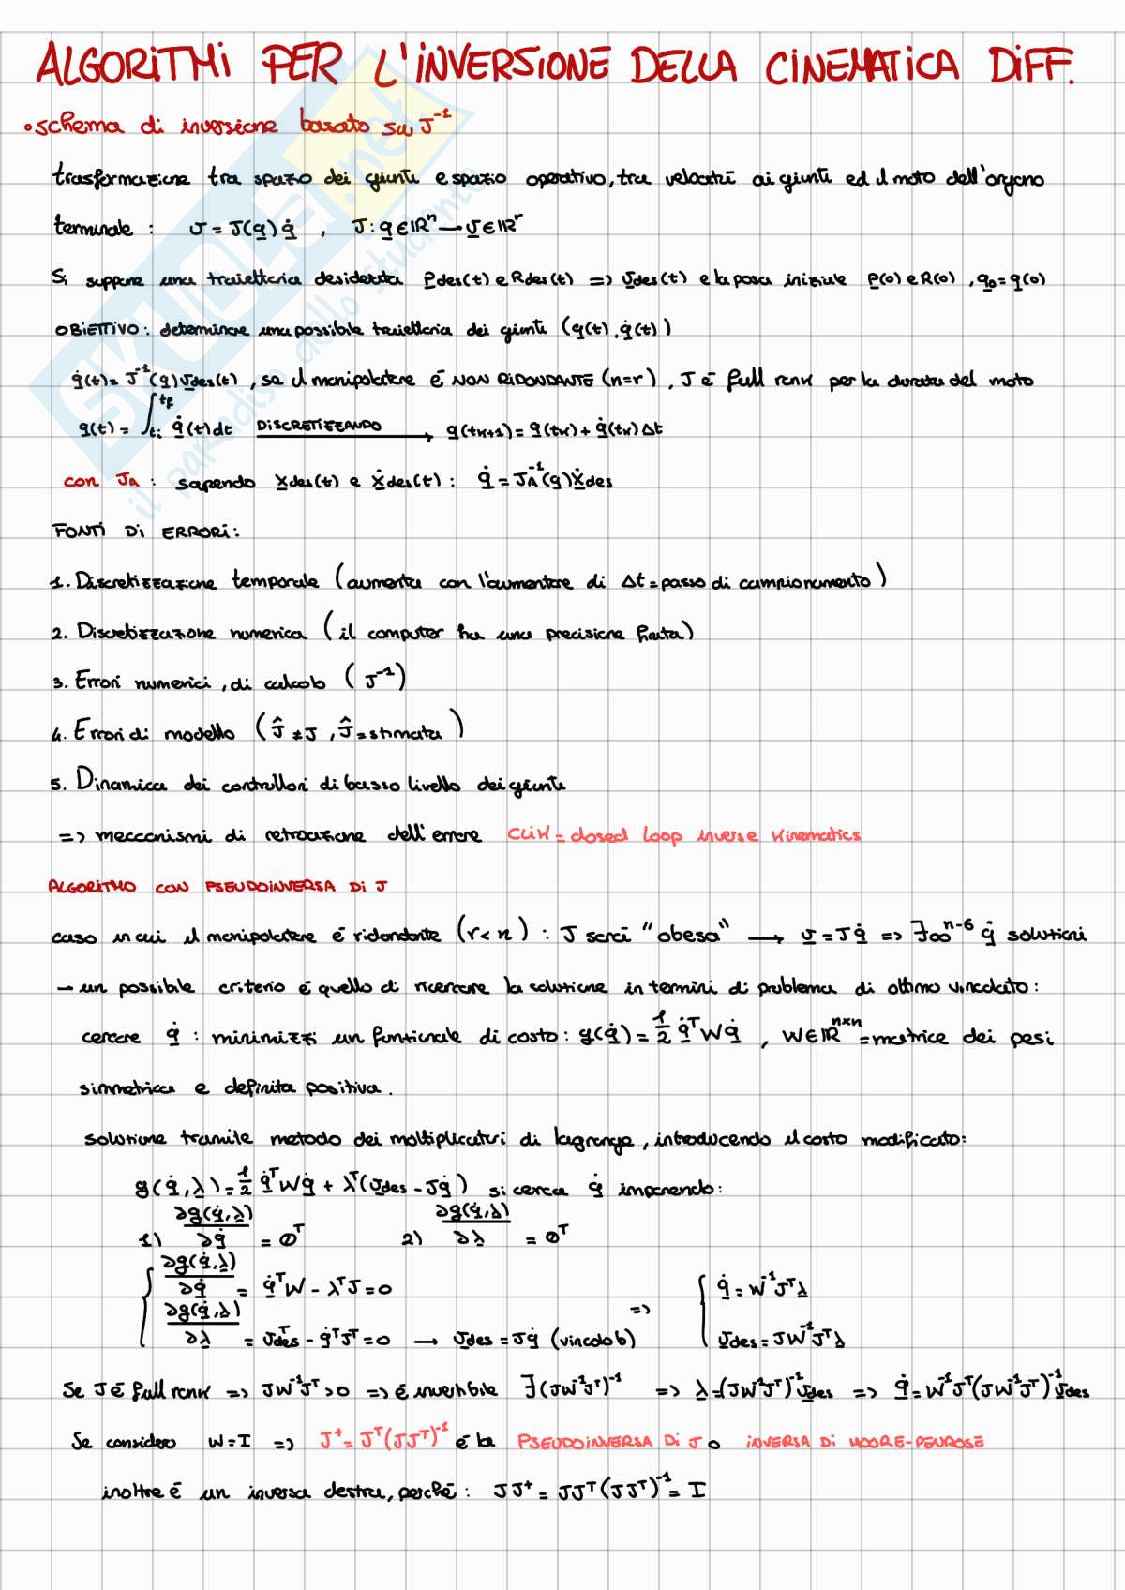 ALGORITMI PER L'INVERSIONE DELLA CINEMATICA DIFF.
• schema di inversione basato su J⁻¹
trasformazione tra spazio dei giunti e spazio operativo, tra velocità ai giunti ed il moto dell'organo
terminale : v = J(q) q̇ , J: q̇ ∈ ℝⁿ → v ∈ ℝʳ
Si suppone una traiettoria desiderata Pdes(t) e Rdes(t) => vdes(t) e la posa iniziale p(0) e R(0), q₀ = q(0)
OBIETTIVO: determinare una possibile traiettoria dei giunti (q(t), q̇(t))
q̇(t) = J⁻¹(q) vdes(t), se il manipolatore è NON RIDONDANTE (n=r), J è full rank per la durata del moto
q(t) = ∫ₜᵢ^tf q̇(t)dt DISCRETIZZANDO → q(tk+1) = q(tk) + q̇(tk) Δt
con JA : sapendo xdes(t) e ẋdes(t) : q̇ = JA⁻¹(q) ẋdes
FONTI DI ERRORI:
1. Discretizzazione temporale (aumenta con l'aumentare di Δt = passo di campionamento)
2. Discretizzazione numerica (il computer ha una precisione finita)
3. Errori numerici, di calcolo (J⁻¹)
4. Errori di modello (Ĵ ≠ J, Ĵ = stimata)
5. Dinamica dei controllori di basso livello dei giunti
=> meccanismi di retroazione dell'errore CLIK = closed loop inverse kinematics
ALGORITMO CON PSEUDOINVERSA DI J
caso in cui il manipolatore è ridondante (r < n) : J sarà "obesa" → v = J q̇ => ∃ ∞ⁿ⁻⁶ q̇ soluzioni
→ un possibile criterio è quello di ricercare la soluzione in termini di problema di ottimo vincolato:
cercare q̇ : minimizzi un funzionale di costo: g(q̇) = 1/2 q̇ᵀ W q̇ , W ∈ ℝⁿˣⁿ = matrice dei pesi
simmetrica e definita positiva.
soluzione tramite metodo dei moltiplicatori di lagrange, introducendo il costo modificato:
g(q̇, λ) = 1/2 q̇ᵀ W q̇ + λᵀ(vdes - J q̇) si cerca q̇ imponendo:
1) ∂g(q̇, λ)/∂q̇ = 0ᵀ 2) ∂g(q̇, λ)/∂λ = 0ᵀ
{ ∂g(q̇, λ)/∂q̇ = q̇ᵀ W - λᵀ J = 0 => { q̇ = W⁻¹ Jᵀ λ
∂g(q̇, λ)/∂λ = vdesᵀ - q̇ᵀ Jᵀ = 0 → vdes = J q̇ (vincolo) vdes = J W⁻¹ Jᵀ λ
Se J è full rank => J W⁻¹ Jᵀ > 0 => è invertibile ∃ (J W⁻¹ Jᵀ)⁻¹ => λ = (J W⁻¹ Jᵀ)⁻¹ vdes => q̇ = W⁻¹ Jᵀ (J W⁻¹ Jᵀ)⁻¹ vdes
Se considero W = I => J⁺ = Jᵀ (J Jᵀ)⁻¹ è la PSEUDOINVERSA DI J o INVERSA DI MOORE-PENROSE
inoltre è un inversa destra, perché : J J⁺ = J Jᵀ (J Jᵀ)⁻¹ = I
SKUOLA.net
il paradiso dello studente